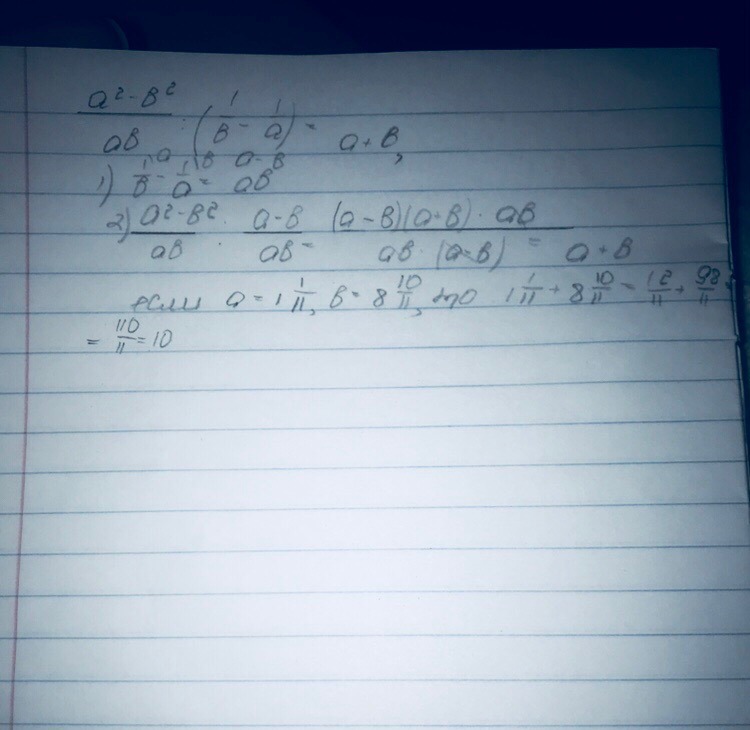 a² - b² / ab : (1/b - 1/a) = a + b,
1) 1/b \a - 1/a \b = a - b / ab
2) a² - b² / ab : a - b / ab = (a - b)(a + b) · ab / ab · (a - b) = a + b
если a = 1 1/11, b = 8 10/11, то 1 1/11 + 8 10/11 = 12/11 + 98/11 =
= 110/11 = 10